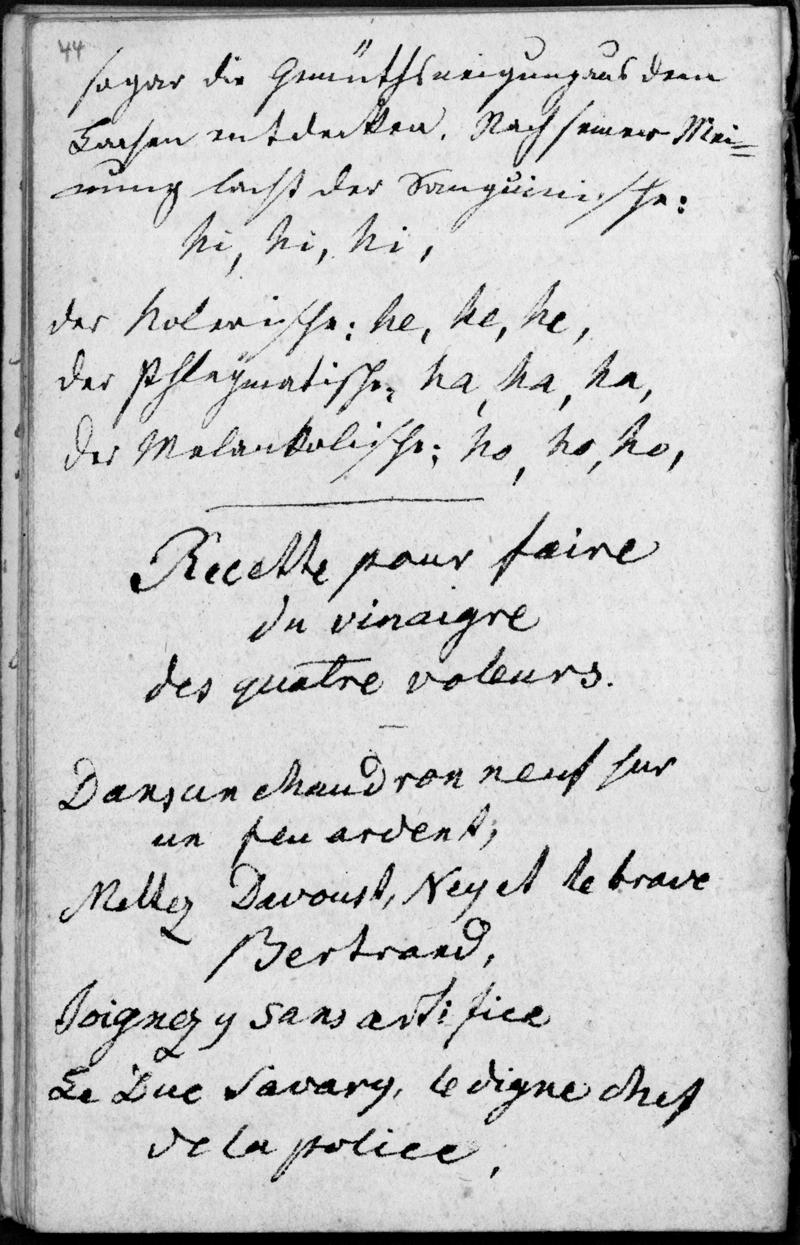 44
sogar die Gemüthsneigung aus dem
Lachen entdecken. Nach seiner Mei=
nung lacht der Sanguinische:
hi, hi, hi,
der Kolerische: he, he, he,
der Phlegmatische: ha, ha, ha,
der Melankolische: ho, ho, ho,
Recette pour faire
du vinaigre
des quatre voleurs.
Dans un chaudron neuf sur
un feu ardent,
Mettez Davoust, Ney et le brave
Bertrand,
Joignez y sans artifice
Le Duc Savary, le digne chef
de la police,